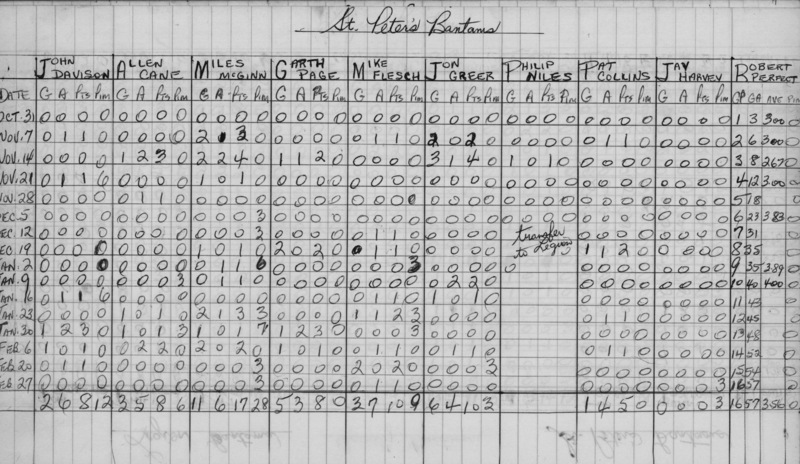 St. Peter's Bantams
JOHN DAVISON ALLEN CANE MILES McGINN GARTH PAGE MIKE FLESCH JON GREER PHILIP NILES PAT COLLINS JAY HARVEY ROBERT PERFECT
DATE G A Pts Pim G A Pts Pim G A Pts Pim G A Pts Pim G A Pts Pim G A Pts Pim G A Pts Pim G A Pts Pim G A Pts Pim GP GA AVE Pim
OCT. 31 0 0 0 0 0 0 0 0 0 0 0 0 0 0 0 0 0 0 0 0 0 0 0 0 0 0 0 0 0 0 0 0 0 0 0 0 1 3 300 0
NOV. 7 0 1 1 0 0 0 0 0 2 1 3 0 0 0 0 0 0 1 1 0 2 0 2 0 0 1 1 0 0 0 0 0 2 6 300 0
NOV. 14 0 0 0 0 1 2 3 0 2 2 4 0 1 1 2 0 0 0 0 0 3 1 4 0 1 0 1 0 0 0 0 0 0 0 0 0 3 8 267 0
NOV. 21 0 1 1 6 0 0 0 0 1 0 1 0 0 0 0 0 0 0 0 0 0 0 0 0 0 0 0 0 0 0 0 0 0 0 0 0 4 12 300 0
NOV. 28 0 0 0 0 0 1 1 0 0 0 0 0 0 0 0 0 0 0 0 0 0 0 0 0 0 0 0 0 0 0 0 0 0 0 0 0 5 18 0
DEC. 5 0 0 0 0 0 0 0 0 0 0 0 3 0 0 0 0 0 0 0 0 0 0 0 0 0 0 0 0 0 0 0 0 0 0 0 0 6 23 383 0
DEC. 12 0 0 0 0 0 0 0 0 0 0 0 3 0 0 0 0 0 1 1 0 0 0 0 0 transfer 0 0 0 0 0 0 0 0 7 31 0
DEC. 19 0 0 0 0 0 0 0 0 1 0 1 0 2 0 2 0 0 1 1 0 0 0 0 0 to Legion 1 1 2 0 0 0 0 0 8 35 0
JAN. 2 0 0 0 0 0 0 0 0 0 1 1 6 0 0 0 0 0 0 0 3 0 0 0 0 0 0 0 0 0 0 0 0 0 9 35 389 0
JAN. 9 0 0 0 0 0 0 0 3 0 1 1 0 0 0 0 0 0 0 0 0 0 2 2 0 0 0 0 0 0 0 0 0 10 40 400 0
JAN. 16 0 1 1 6 0 0 0 0 0 0 0 0 0 0 0 0 0 1 1 0 1 0 1 0 0 0 0 0 0 0 0 0 11 43 0
JAN. 23 0 0 0 0 1 0 1 0 2 1 3 3 0 0 0 0 1 1 2 3 0 0 0 0 0 1 1 0 0 0 0 0 12 45 0
JAN. 30 1 2 3 0 1 0 1 3 1 0 1 7 1 2 3 0 0 0 0 3 0 0 0 0 0 0 0 0 0 0 0 0 13 48 0
FEB. 6 1 0 1 0 0 2 2 0 2 0 2 0 1 0 1 0 0 1 1 0 0 1 1 0 0 1 1 0 0 0 0 0 14 52 0
FEB. 20 0 1 1 0 0 0 0 0 0 0 0 3 0 0 0 0 2 0 2 0 0 0 0 3 0 0 0 0 0 0 0 0 15 54 0
FEB. 27 0 0 0 0 0 0 0 0 0 0 0 3 0 0 0 0 0 1 1 0 0 0 0 0 0 0 0 0 0 0 0 3 16 57 0
2 6 8 12 3 5 8 6 11 6 17 28 5 3 8 0 3 7 10 9 6 4 10 3 1 4 5 0 0 0 0 3 16 57 356 0